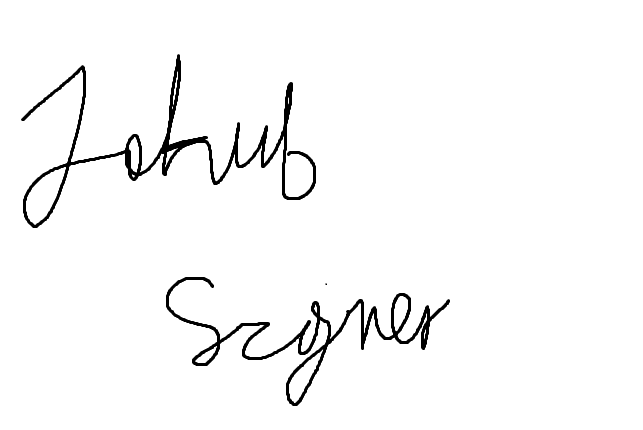 Jakub
Szgner